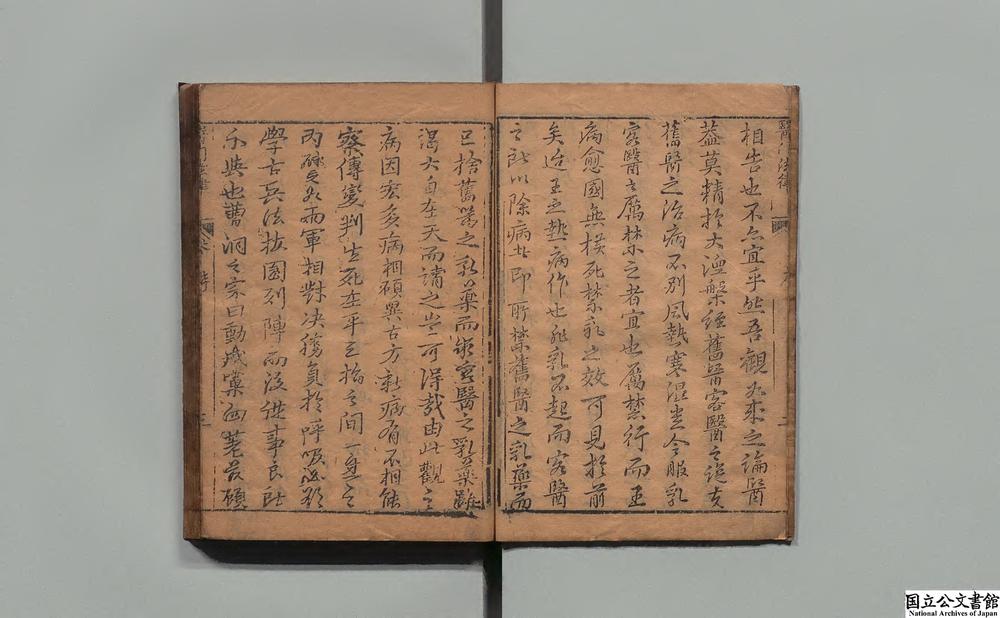 相告也不亦宜乎然吾觀從來之論醫
蓋莫精於大涅槃經舊醫客醫之說矣
舊醫之治病不別風熱寒溫悉令服乳
客醫之厲禁之者宜也厲禁行而王
病愈國無橫死禁乳之效可見於前
矣迨王之熱病作也非乳不起而客醫
之所以除病者即所禁舊醫之乳藥而
已捨舊醫之乳藥而求客醫之乳藥雖
謁大自在天而請之豈可得哉由此觀之
病因宏多病相頗異古方新病有不相能
察傳變判生死在乎三指之間一匕之
內極之如兩軍相對決勝負於呼吸必欲
學古兵法按圖列陣而後從事良所
不與也曹洞之宗曰動成窠臼差落顧
醫門法律
醫門法律
国立公文書館
National Archives of Japan